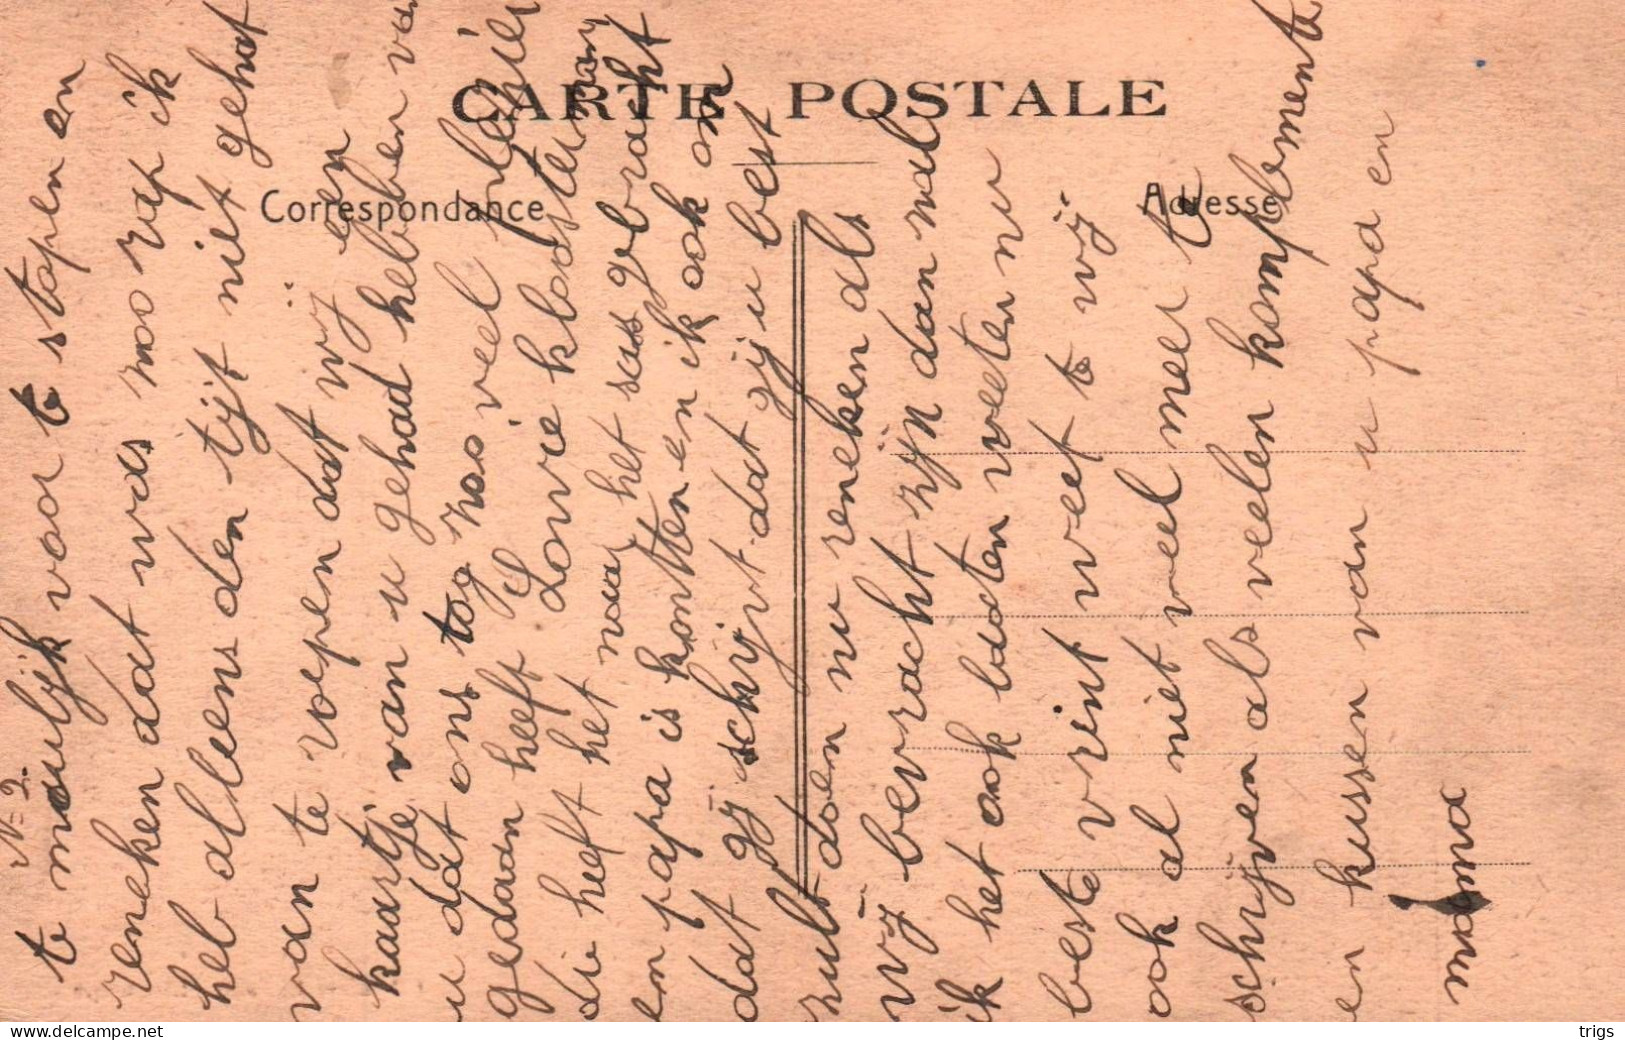 CARTE POSTALE
Correspondance
Adresse
N= 2.
te moeulijk voor te stapen en
reneken dat was noo rap ik
heb alleens den tijt niet gehat
van te roepen dat wij en
kaartje van u gehad hebben van
u dat ons tog zoo veel plezier
gedaan heeft Lowie kloosterman
die heeft het naar het sas gebracht
en papa is komen en ik ook on
dat gij schijvt dat gij u best
zult doen nu reneken als
wij bevracht zijn dan nal
ik het ook laaten weeten nu
beste vrint weet te wij
ook al niet veel meer te
schrijven als veelen komplementen
en kussen van u papa en
mama
www.delcampe.net
trigs